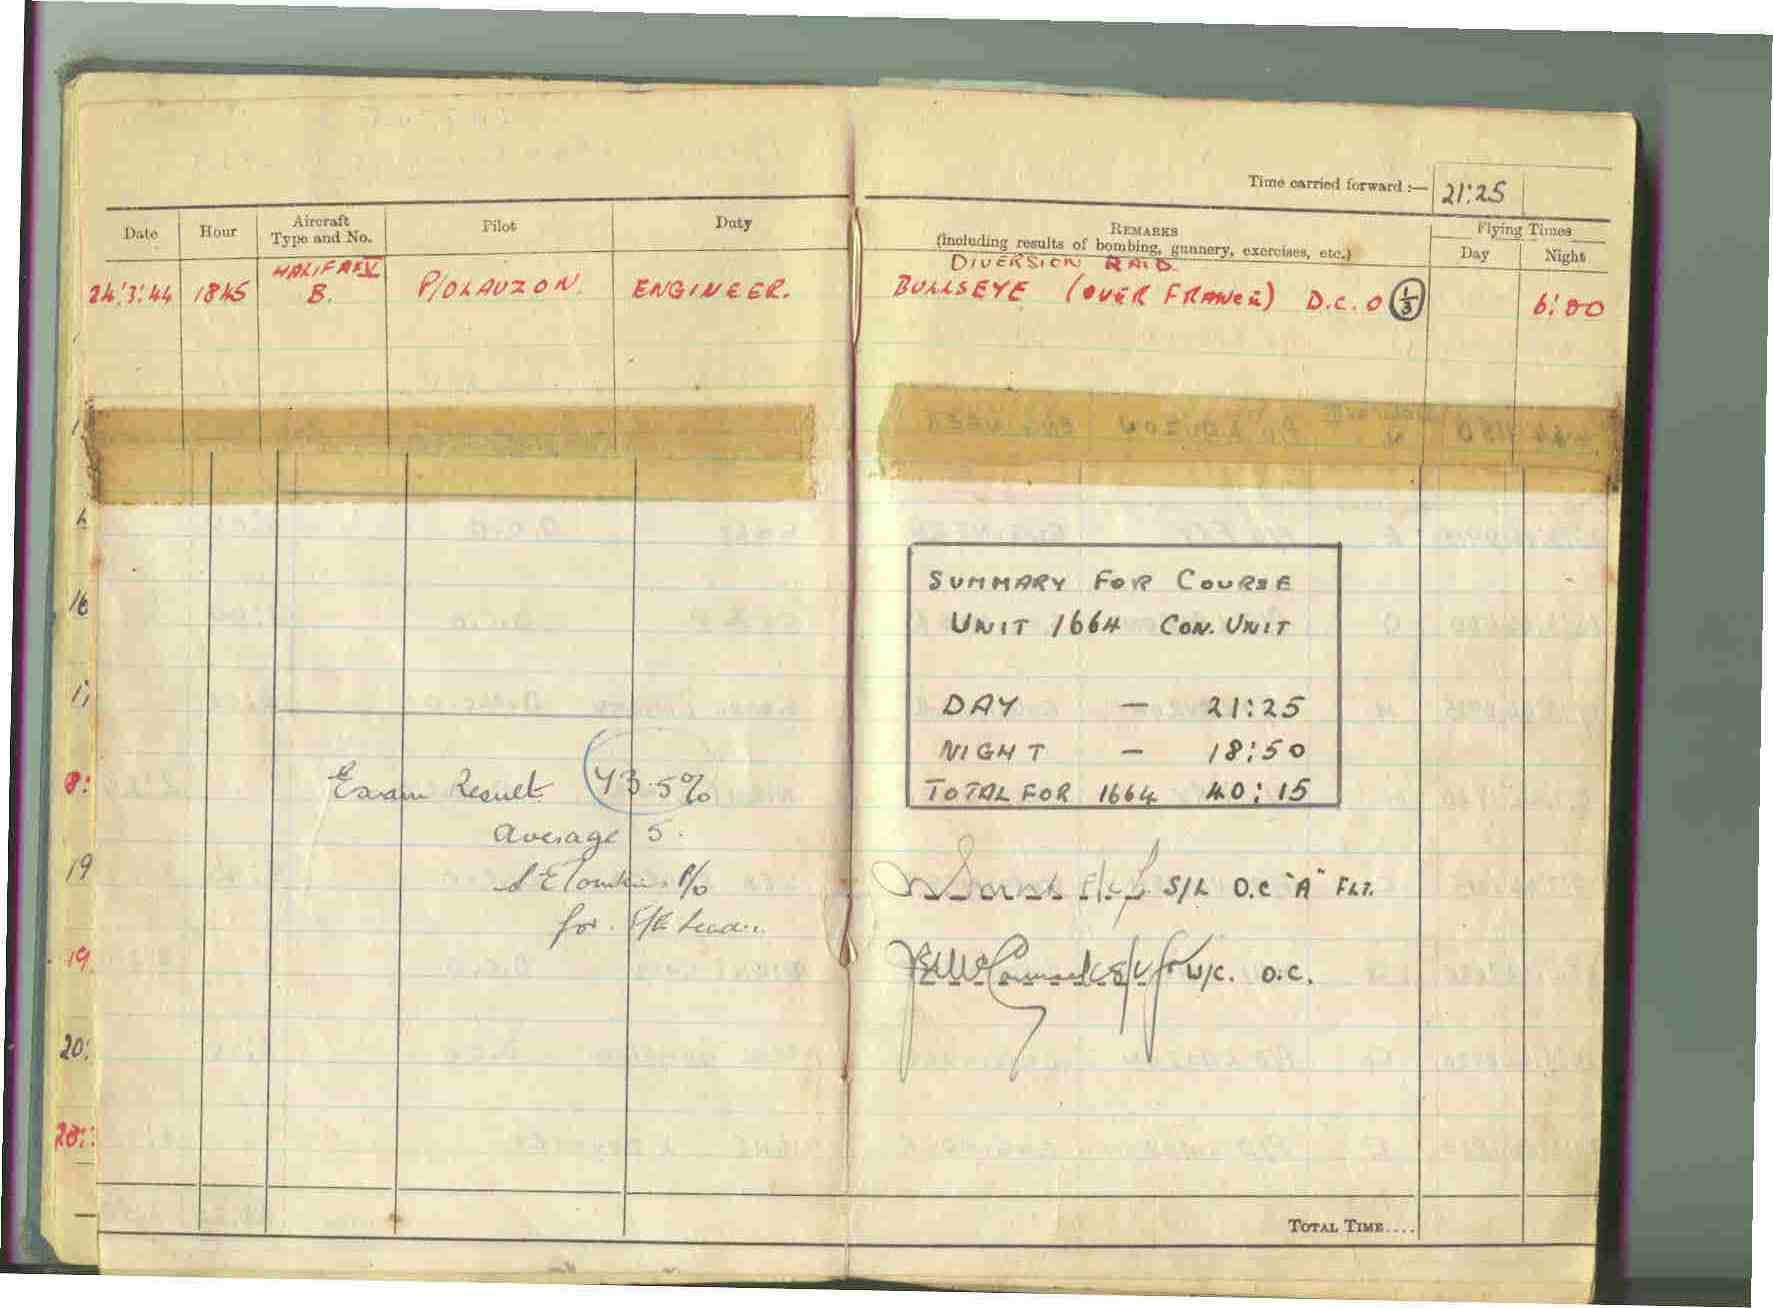 Time carried forward :— 21:25
Date Hour Aircraft Type and No. Pilot Duty REMARKS (including results of bombing, gunnery, exercises, etc.) Flying Times Day Night
DIVERSION RAID.
24:3:44 1845 HALIFAX V B. P/O LAUZON. ENGINEER. BULLSEYE (OVER FRANCE) D.C.O 1/3 6:00
SUMMARY FOR COURSE
UNIT 1664 CON. UNIT
DAY — 21:25
NIGHT — 18:50
TOTAL FOR 1664 40:15
Exam Result 43.5%
average 5.
P/O
for F/E Leader
S/L O.C "A" FLT.
W/C. O.C.
16
19
19.
20:
20:
TOTAL TIME....